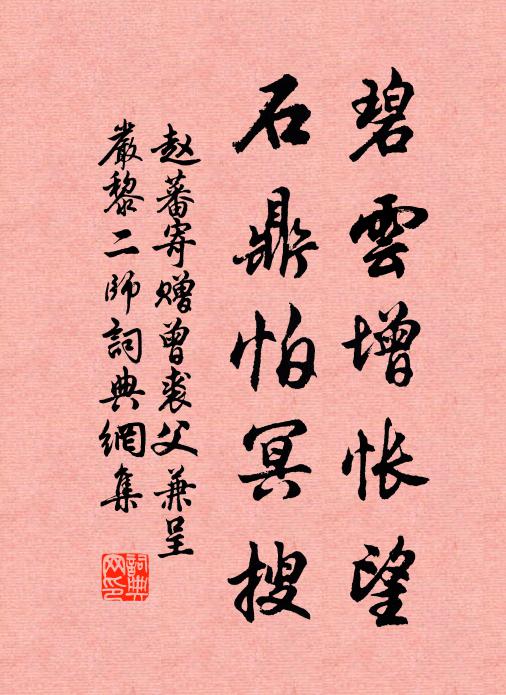 碧雲增怅望
石鼎怕冥搜
赵蕃寄赠曾裘父兼呈
嚴黎二師詞典網集
詞典
网印